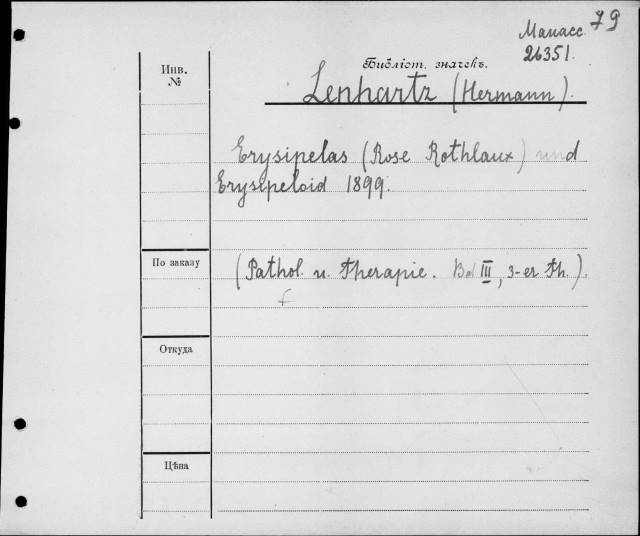 79
Манасс.
26351.
Инв.
№
Библіот. значекъ.
Lenhartz (Hermann).
Erysipelas (Rose Rothlaux) und
Erysipeloid 1899.
По заказу
(Pathol. u. Therapie. Bd III, 3-er Th.).
f
Откуда
Цѣна